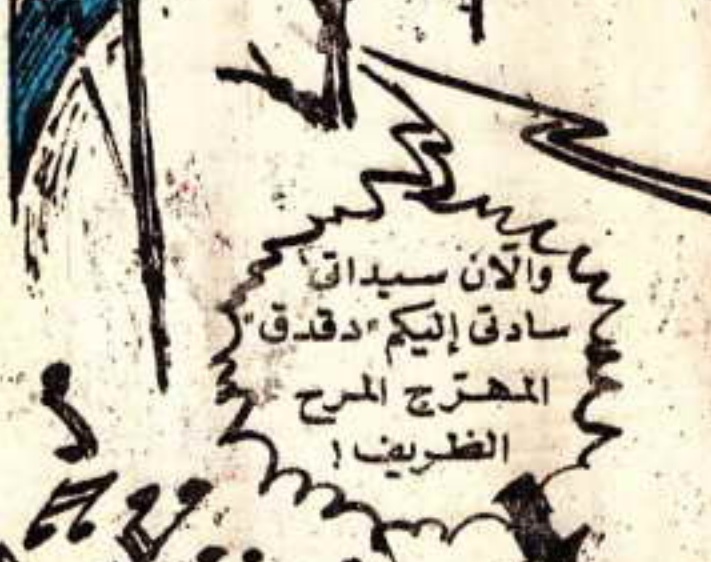 والآن سيداتى
سادتى إليكم "دقدق"
المهرّج المرح
الظريف !